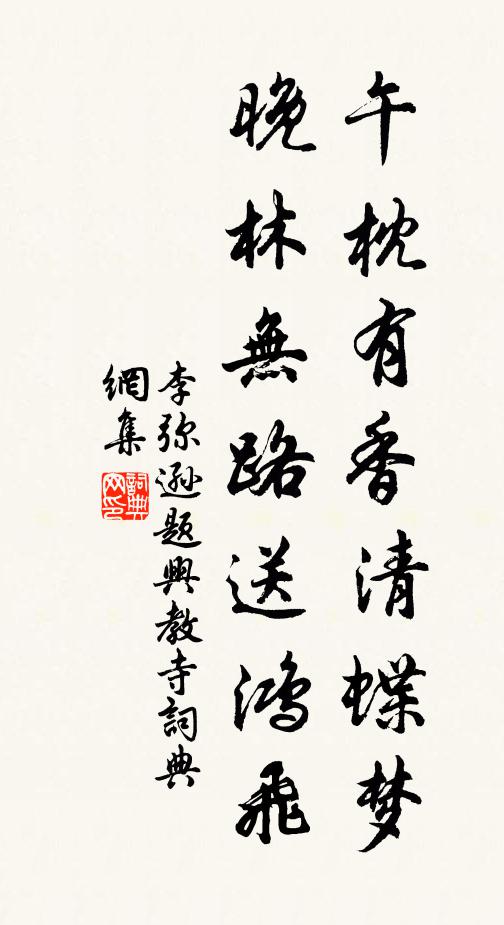 午枕有香清蝶梦
晚林無路送鴻飛
李弥遜題興教寺詞典
網集
詞典網印